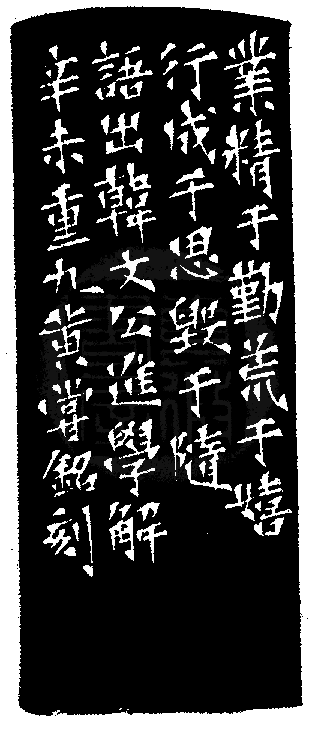 業精于勤荒于嬉
行成于思毀于隨
語出韓文公進學解
辛未重九黄嘗銘刻